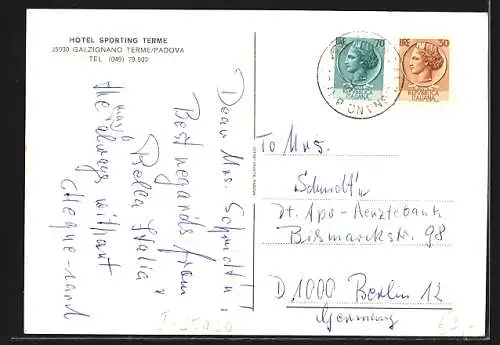 HOTEL SPORTING TERME
35030 GALZIGNANO TERME/PADOVA
TEL. (049) 79.500
Dear Mrs. Schmidt'n:
Best regards from
Bella Italia
the always without
money
Cheque-card
LIRE 70
REPVBBLICA
ITALIANA
LIRE 30
REPVBBLICA
ITALIANA
To Mrs.
Schmidt'n
Dt. Apo-Aerztebank
Bismarckstr. 98
D 1000 Berlin 12
Germany